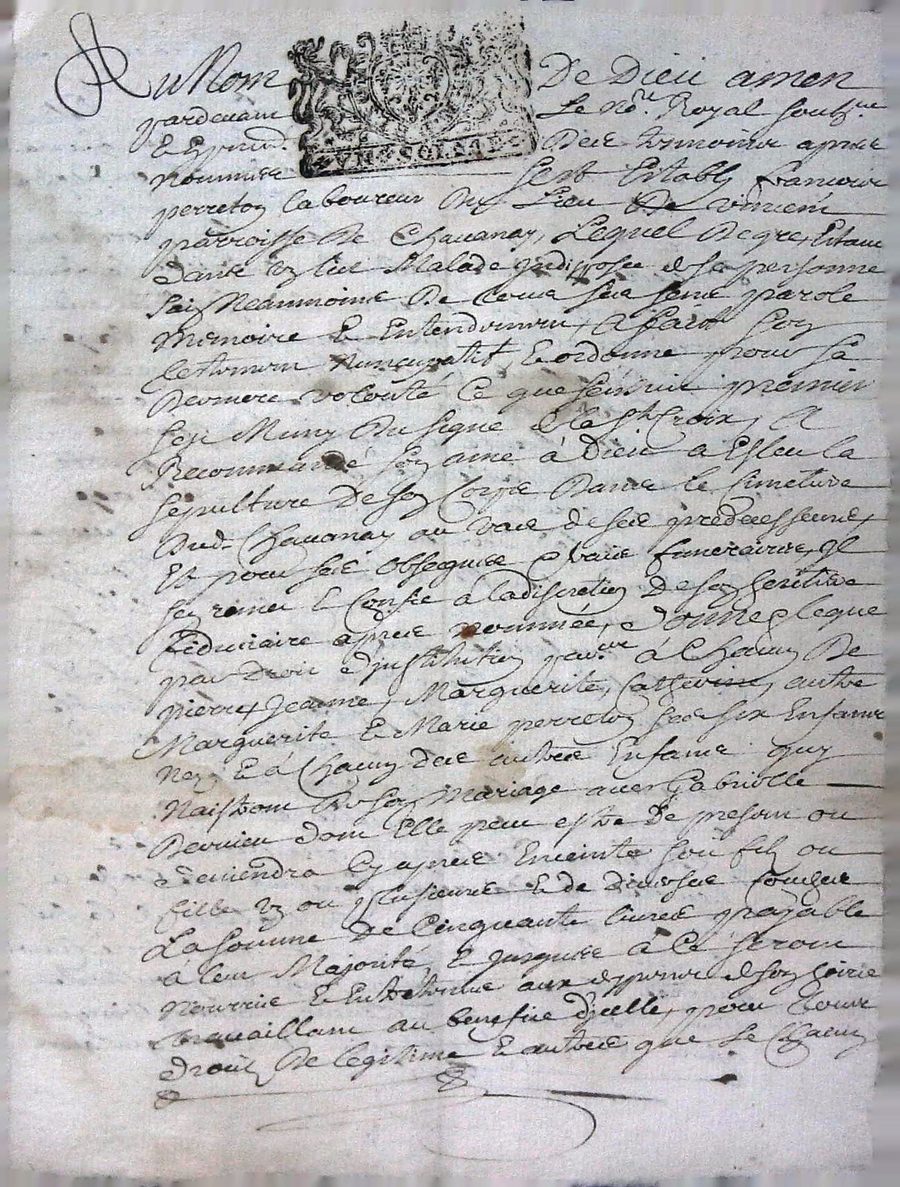 Au Nom De Dieu amen
pardevant Le no.re Royal soubz.ne
Et presend. Des tesmoins apres
nommes sest Estably francois
perreton laboureur du Lieu De
parroisse De Chavanay, Lequel De gre, Estant
dans un lict Malade indispose de sa personne
sain Neanmoins De tous ses sens parole
memoire Et Entendement, A faict son
testament nuncupatif, Et ordonne pour sa
derniere volonté Ce que sensuit premier
sest Muny Du signe de la S.te Croix, A
Recommandé son ame à Dieu a Esleu la
sepulture De son Corps Dans le Cimetiere
Dud. Chavanay au vase de ses predecesseurs,
Et pour ses obseques & frais funeraires, Il
sen remet & Confie à la discretion De son heritiere
fiduciaire apres nommée, donne & legue
par Droit d'institution par.re à Chacun De
pierre, Jeanne, Marguerite, Catterine, autre
Marguerite & Marie perreton ses six Enfants
Nez, Et à Chacun des autres Enfants quy
Naistront de son Mariage avec Gabrielle
dont Elle peut estre de present ou
deviendra Cy apres Enceinte soit fils ou
fille un ou plusieurs & de diverses Couches
La somme de Cinquante livres payable
à leur Majorité, & jusques à Ce seront
nourris & Entretenus aux depens de son hoirie
travaillant au benefice d'icelle, pour tous
droits De legitime & autres que le Chacun